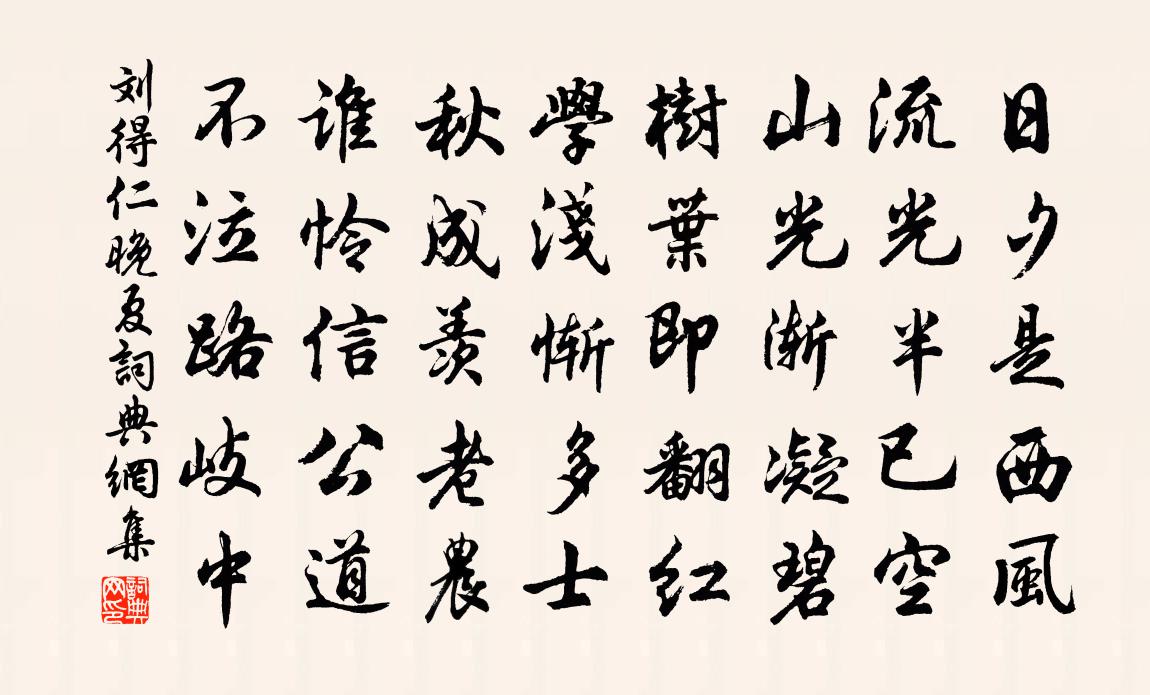 日夕是西風
流光半已空
山光渐凝碧
樹葉即翻红
學淺慚多士
秋成羨老農
誰怜信公道
不泣路岐中
刘得仁晚夏詞典網集
詞典網印